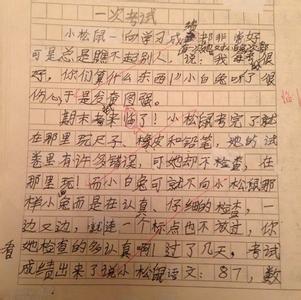 一次考试
小松鼠一向学习成绩都非常好
可是总是瞧不起别人，说：我每考很
好，你们算什么东西！小白兔听了很
伤心于是发奋图强。
期末考来临了！小松鼠考完了就
在那里玩尺子、橡皮和铅笔，她的试
卷里有许多错误，可她却不检查，在
那里玩！而小白兔可就不向小松鼠那
样小兔而是在认真、仔细的检查，一
边又边，就连一个标点也不放过，你
看她检查的多认真啊！过了几天，考试
成绩出来了说小松鼠语文：87，数